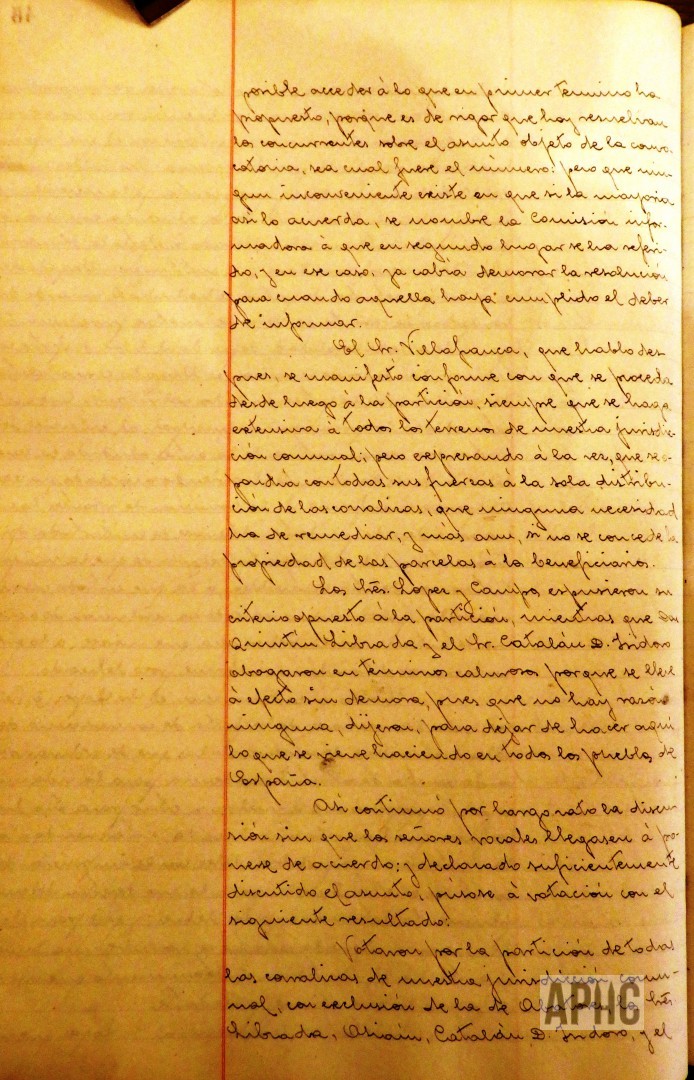 posible acceder à lo que en primer termino ha
propuesto, porque es de rigor que hoy resuelvan
los concurrentes sobre el asunto objeto de la convo
catoria, sea cual fuere el número: pero que nin
gun inconveniente existe en que si la mayoria
asi lo acuerda, se nombre la Comisión infor-
madora à que en segundo lugar se ha referi-
do, y en ese caso, ya cabia demorar la resolución
para cuando aquella haya cumplido el deber
de informar.
El Sr. Villafranca, que hablo des
pues, se manifesto conforme con que se proceda
desde luego à la partición, siempre que se haga
extensiva à todos los terrenos de nuestra jurisdic-
ción comunal; pero expresando à la vez, que se o
pondrá con todas sus fuerzas à la sola distribu-
ción de las corralizas, que ninguna necesidad
ha de remediar, y más aun, si no se concede la
propiedad de las parcelas à los beneficiarios.
Los Sres. Lopez y Campo, expusieron su
criterio opuesto à la partición, mientras que Don
Quintin Librada y el Sr. Catalán D. Isidoro
abogaron en términos calurosos porque se lleve
à efecto sin demora, pues que no hay razón
ninguna, dijeron, para dejar de hacer aqui
lo que se viene haciendo en todos los pueblos de
España.
Asi continuó por largo rato la discu-
sión sin que los señores vocales llegasen à po-
nerse de acuerdo; y declarado suficientemente
discutido el asunto, púsose à votación con el
siguiente resultado:
Votaron por la partición de todas
las corralizas de nuestra jurisdicción comu-
nal, con exclusión de la de los Sres
Librada, Osiain, Catalán D. Isidoro, y el
APHC